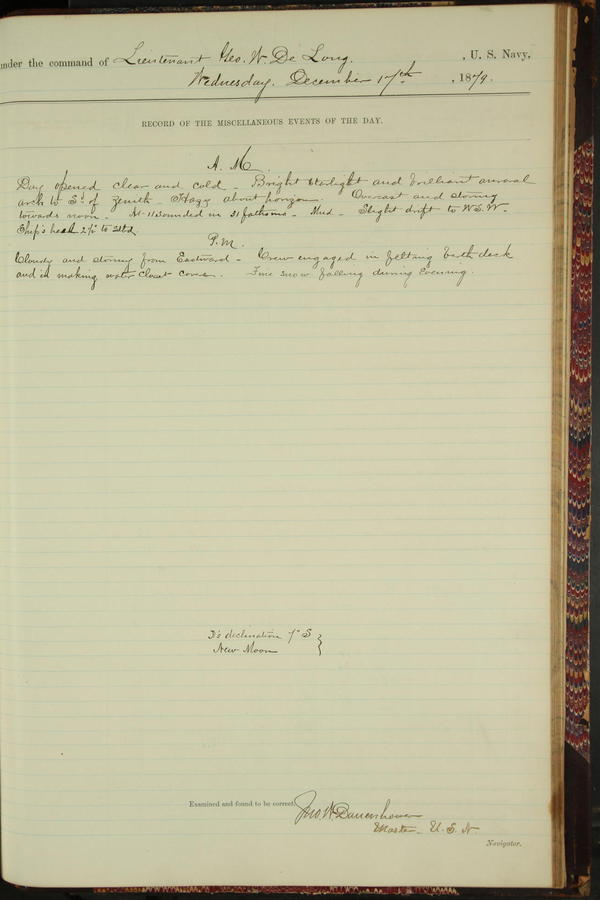 under the command of Lieutenant Geo. W. De Long. , U. S. Navy,
Wednesday. December 17th , 1879.
RECORD OF THE MISCELLANEOUS EVENTS OF THE DAY.
A. M.
Day opened clear and cold - Bright starlight and brilliant auroral
arch to Sd. of zenith - Hazy about horizon. Overcast and stormy
towards noon. At 11 sounded in 31 fathoms - Mud - Slight drift to W.S.W.
Ship's head
P. M.
Cloudy and stormy from Eastward - Crew engaged in felting berth deck
and in making water closet cover. Fine snow falling during Evening.
declination S }
New Moon
Examined and found to be correct.
Jno. W. Danenhower
Master - U. S. N.
Navigator.